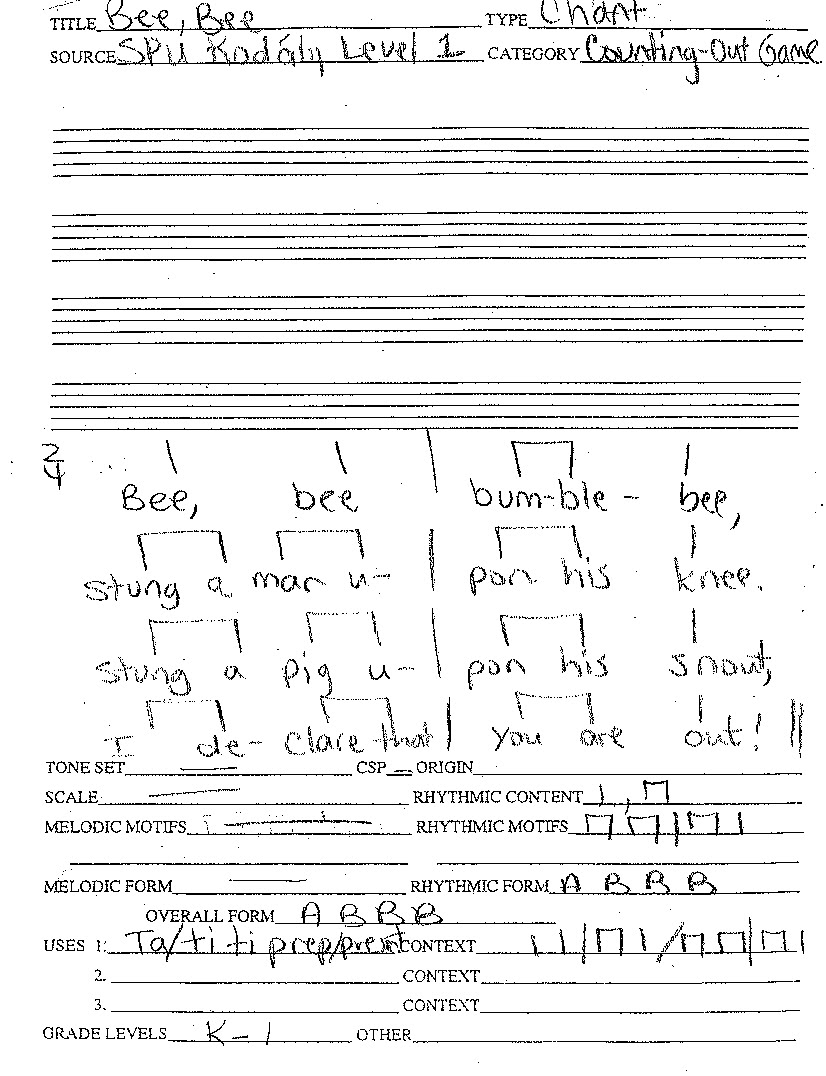 TITLE Bee, Bee TYPE Chant
SOURCE SPU Kodály Level 1 CATEGORY Counting-Out Game
2/4
Bee, bee bum-ble- bee,
stung a man u- pon his knee.
Stung a pig u- pon his snout,
I de- clare that you are out!
TONE SET CSP ORIGIN
SCALE RHYTHMIC CONTENT
MELODIC MOTIFS RHYTHMIC MOTIFS
MELODIC FORM RHYTHMIC FORM A B B B
OVERALL FORM A B B B
USES 1. Ta/ti ti prep/present CONTEXT
2. CONTEXT
3. CONTEXT
GRADE LEVELS K-1 OTHER